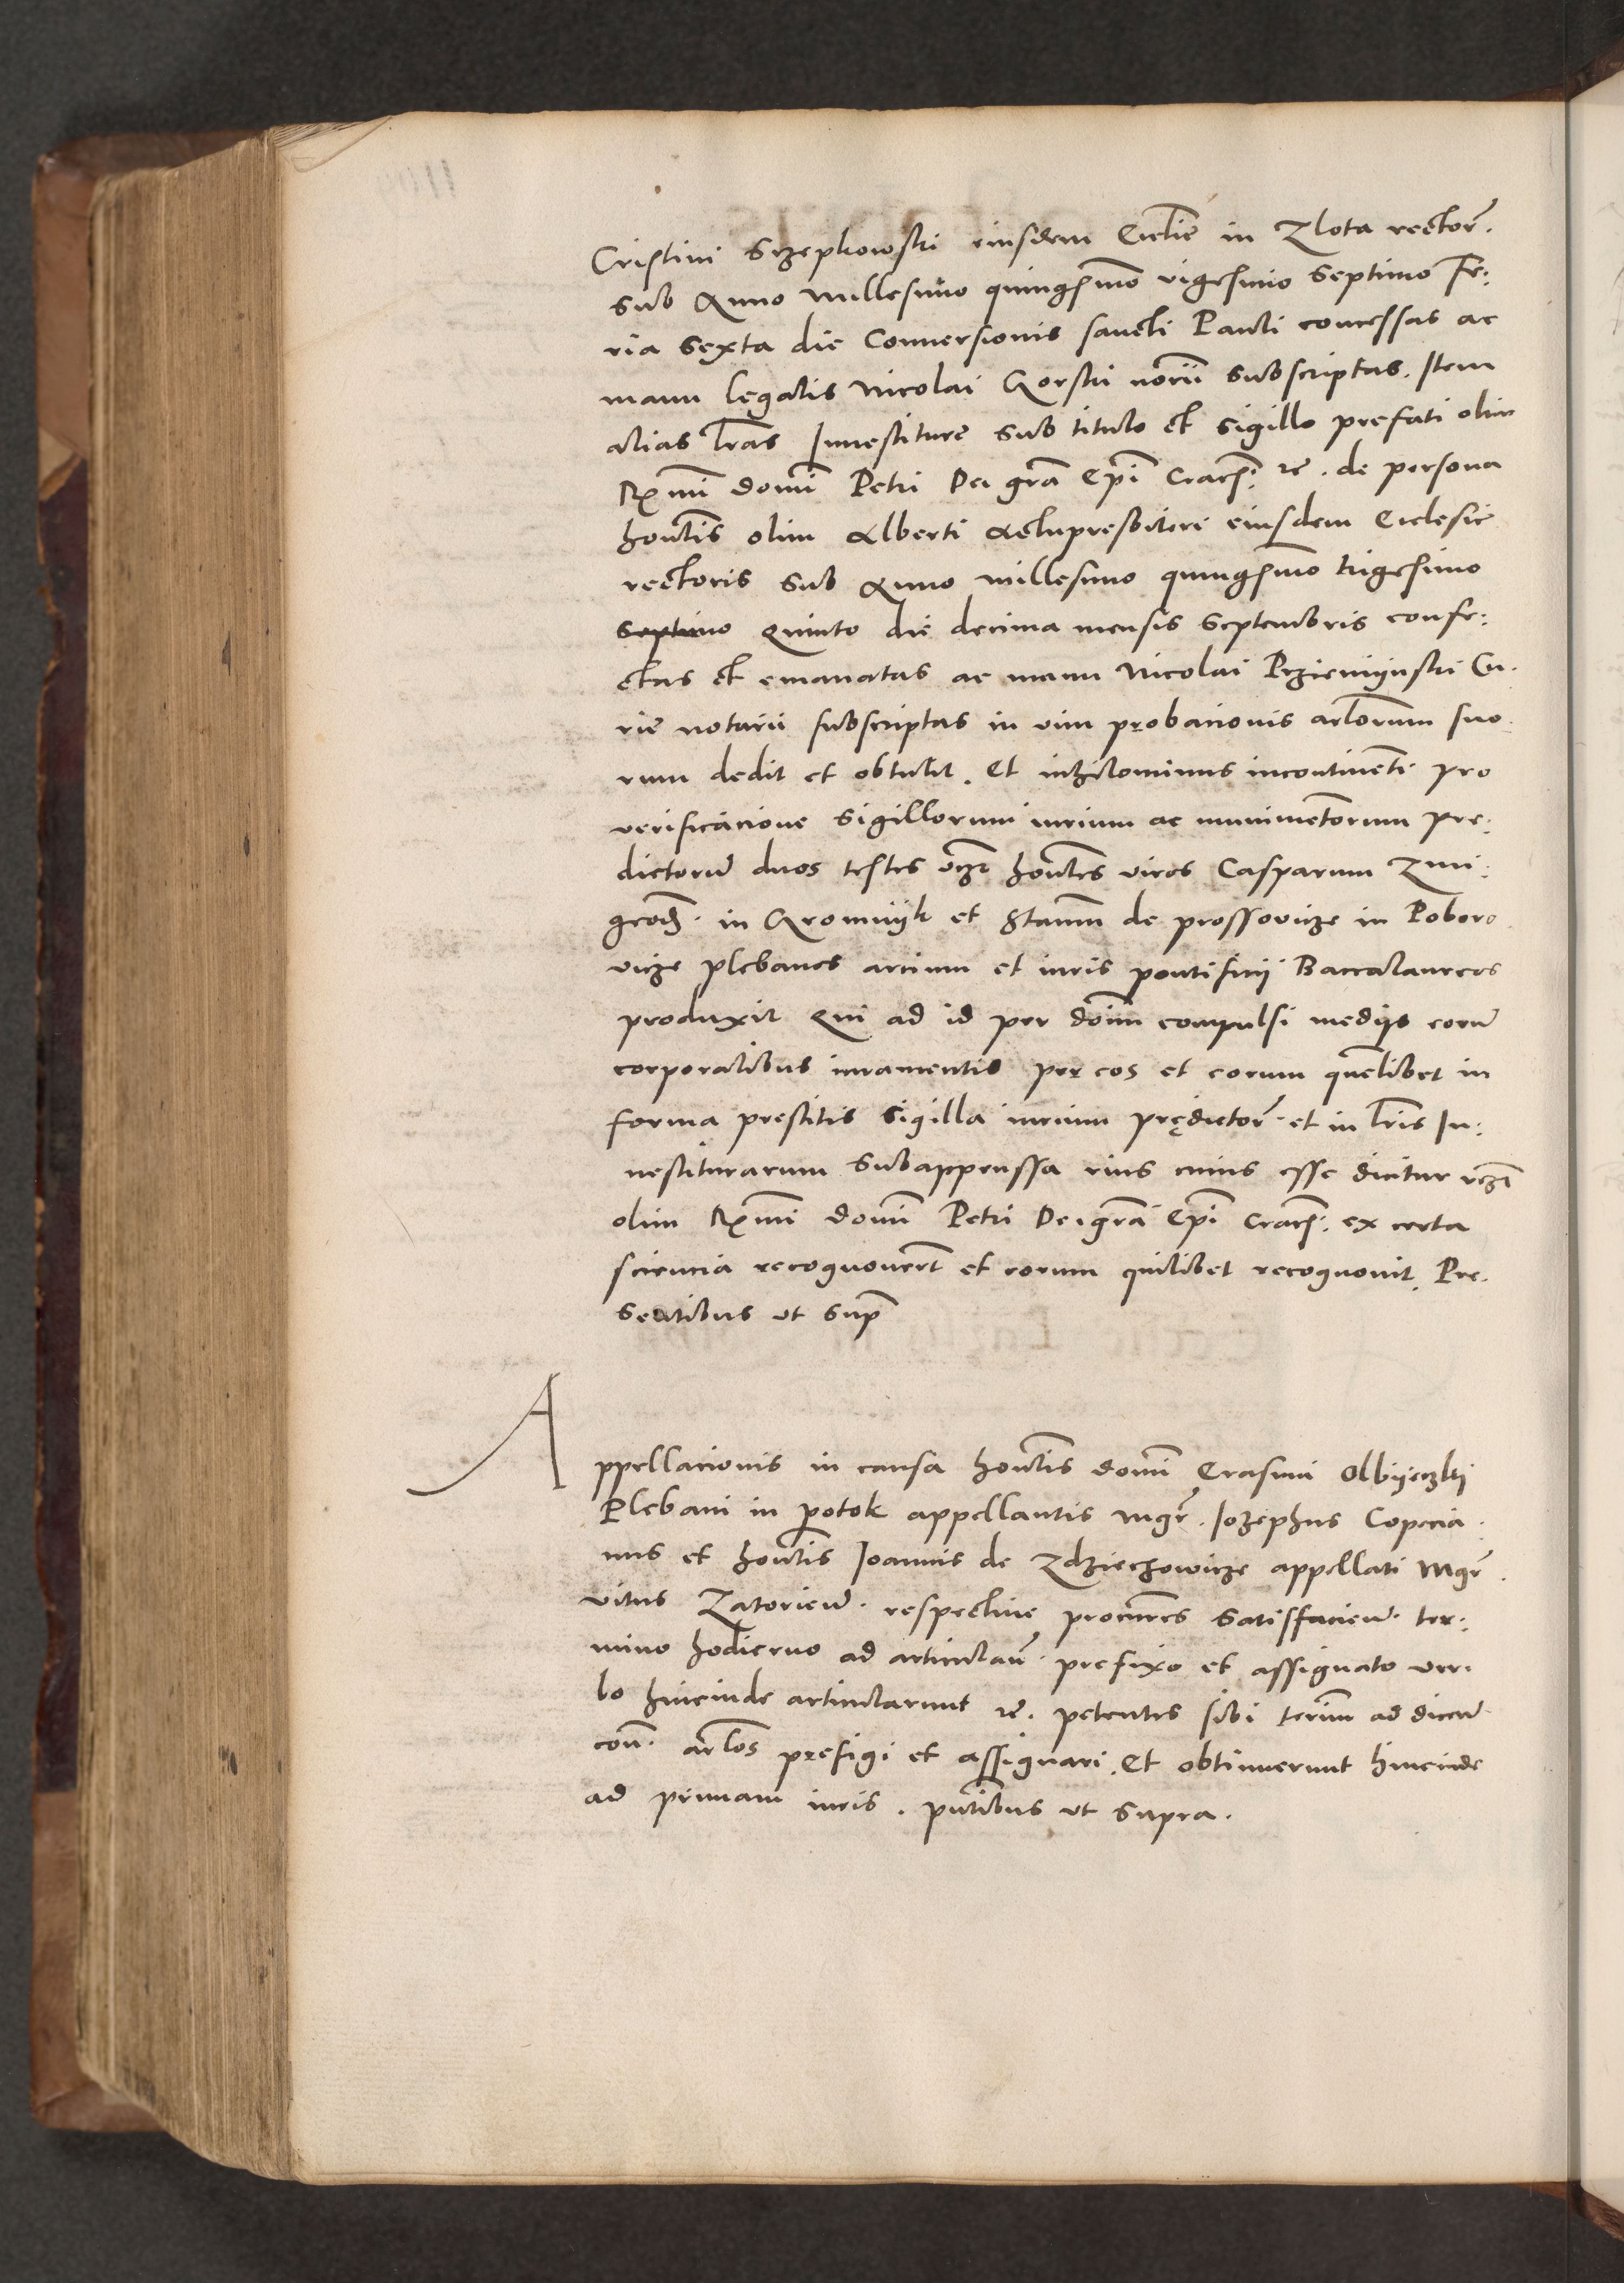 Cristini Sczepkowski eiusdem Ecclie in Zlota rector̃.
sub Anno Millesimo quingsmo vigesimo septimo Fe:
ria Sexta die Conversionis sancti Pauli concessas ac
manu legalis Nicolai Gorski norii subscriptas. Item
alias lr̃as Investiture sub titulo et sigillo prefati olim
Rx̃mi domi Petri Dei gra Ep̃i Cracs̃: &c̃. de persona
hontis olim Alberti Actupresbiteri eiusdem Ecclesie
rectoris sub Anno millesimo quingsmo trigesimo
septimo quinto die decima mensis Septembris confe:
ctas et emanatas ac manu Nicolai Przieniynski Cu.
rie notarii subscriptas in vim probacionis arlorum suo.
rum dedit et obtulit. Et nihilominus incontinenti pro
verificacione sigillorum iurium ac munimentorum pre:
dictorum duos testes vcz̃ hontes viros Casparum Zmi:
grod̃. in Gromnyk et Stanm de prossovicze in Poboro
vicze plebanos arcium et iuris pontificii Baccalaureos
produxit Qui ad id per dom̃ compulsi mediis eorum
corporalibus iuramentis per eos et eorum quelibet in
forma prestitis sigilla iurium prędictor̃. et in lr̃is In:
vestiturarum subappressa eius cuius esse dicitur vcz̃
olim Rx̃mi domi Petri Dei gra Ep̃i Cracs̃: ex certa
sciencia recognovert̃ et eorum quilibet recognovit. Pre.
sentibus ut sup̃
Appellacionis in causa hontis domi Erasmi Olbyeczky
Plebani in potok appellantis Mgr̃. Iozephus Copecia.
nus et hontis Joannis de Zdziechowicze appellati Mgr̃.
vitus Zatorien̄. respective procures satisfacien̄. ter:
mino hodierno ad articulan̄. prefixo et assignato ver.
bo hincinde articularunt &c̃. petentes sibi term̃ ad dicen̄
con̄. arlos prefigi et assignari. Et obtinuerunt hincinde
ad primam iuris. pntibus ut supra.